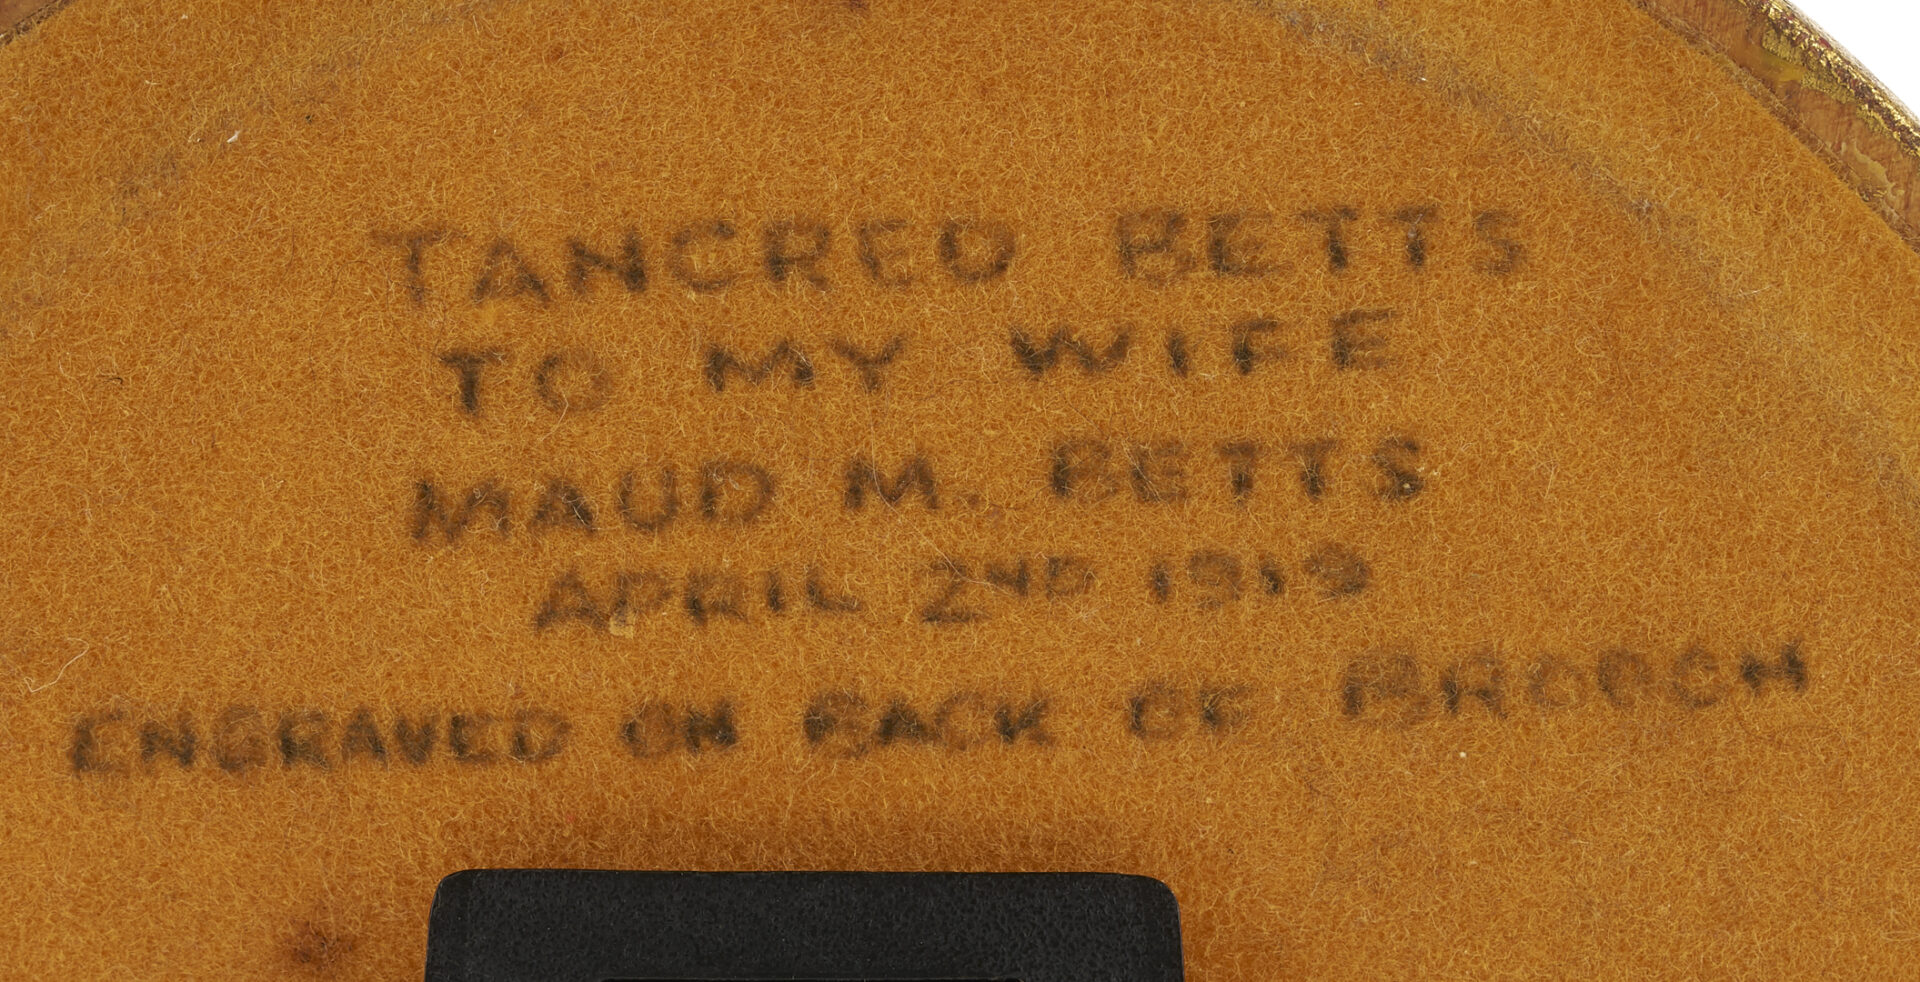 TANCRED BETTS
TO MY WIFE
MAUD M. BETTS
APRIL 2ND 1919
ENGRAVED ON BACK OF BROOCH